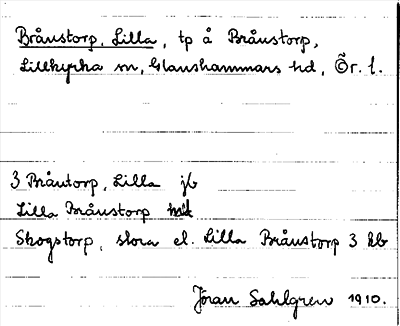 Brånstorp, Lilla, tp å Brånstorp,
Lillkyrka sn, Glanshammars hd, Ör. l.
3 Bråntorp, Lilla jb
Lilla Brånstorp
Skogstorp, stora el. Lilla Brånstorp 3 kb
Jöran Sahlgren 1910.